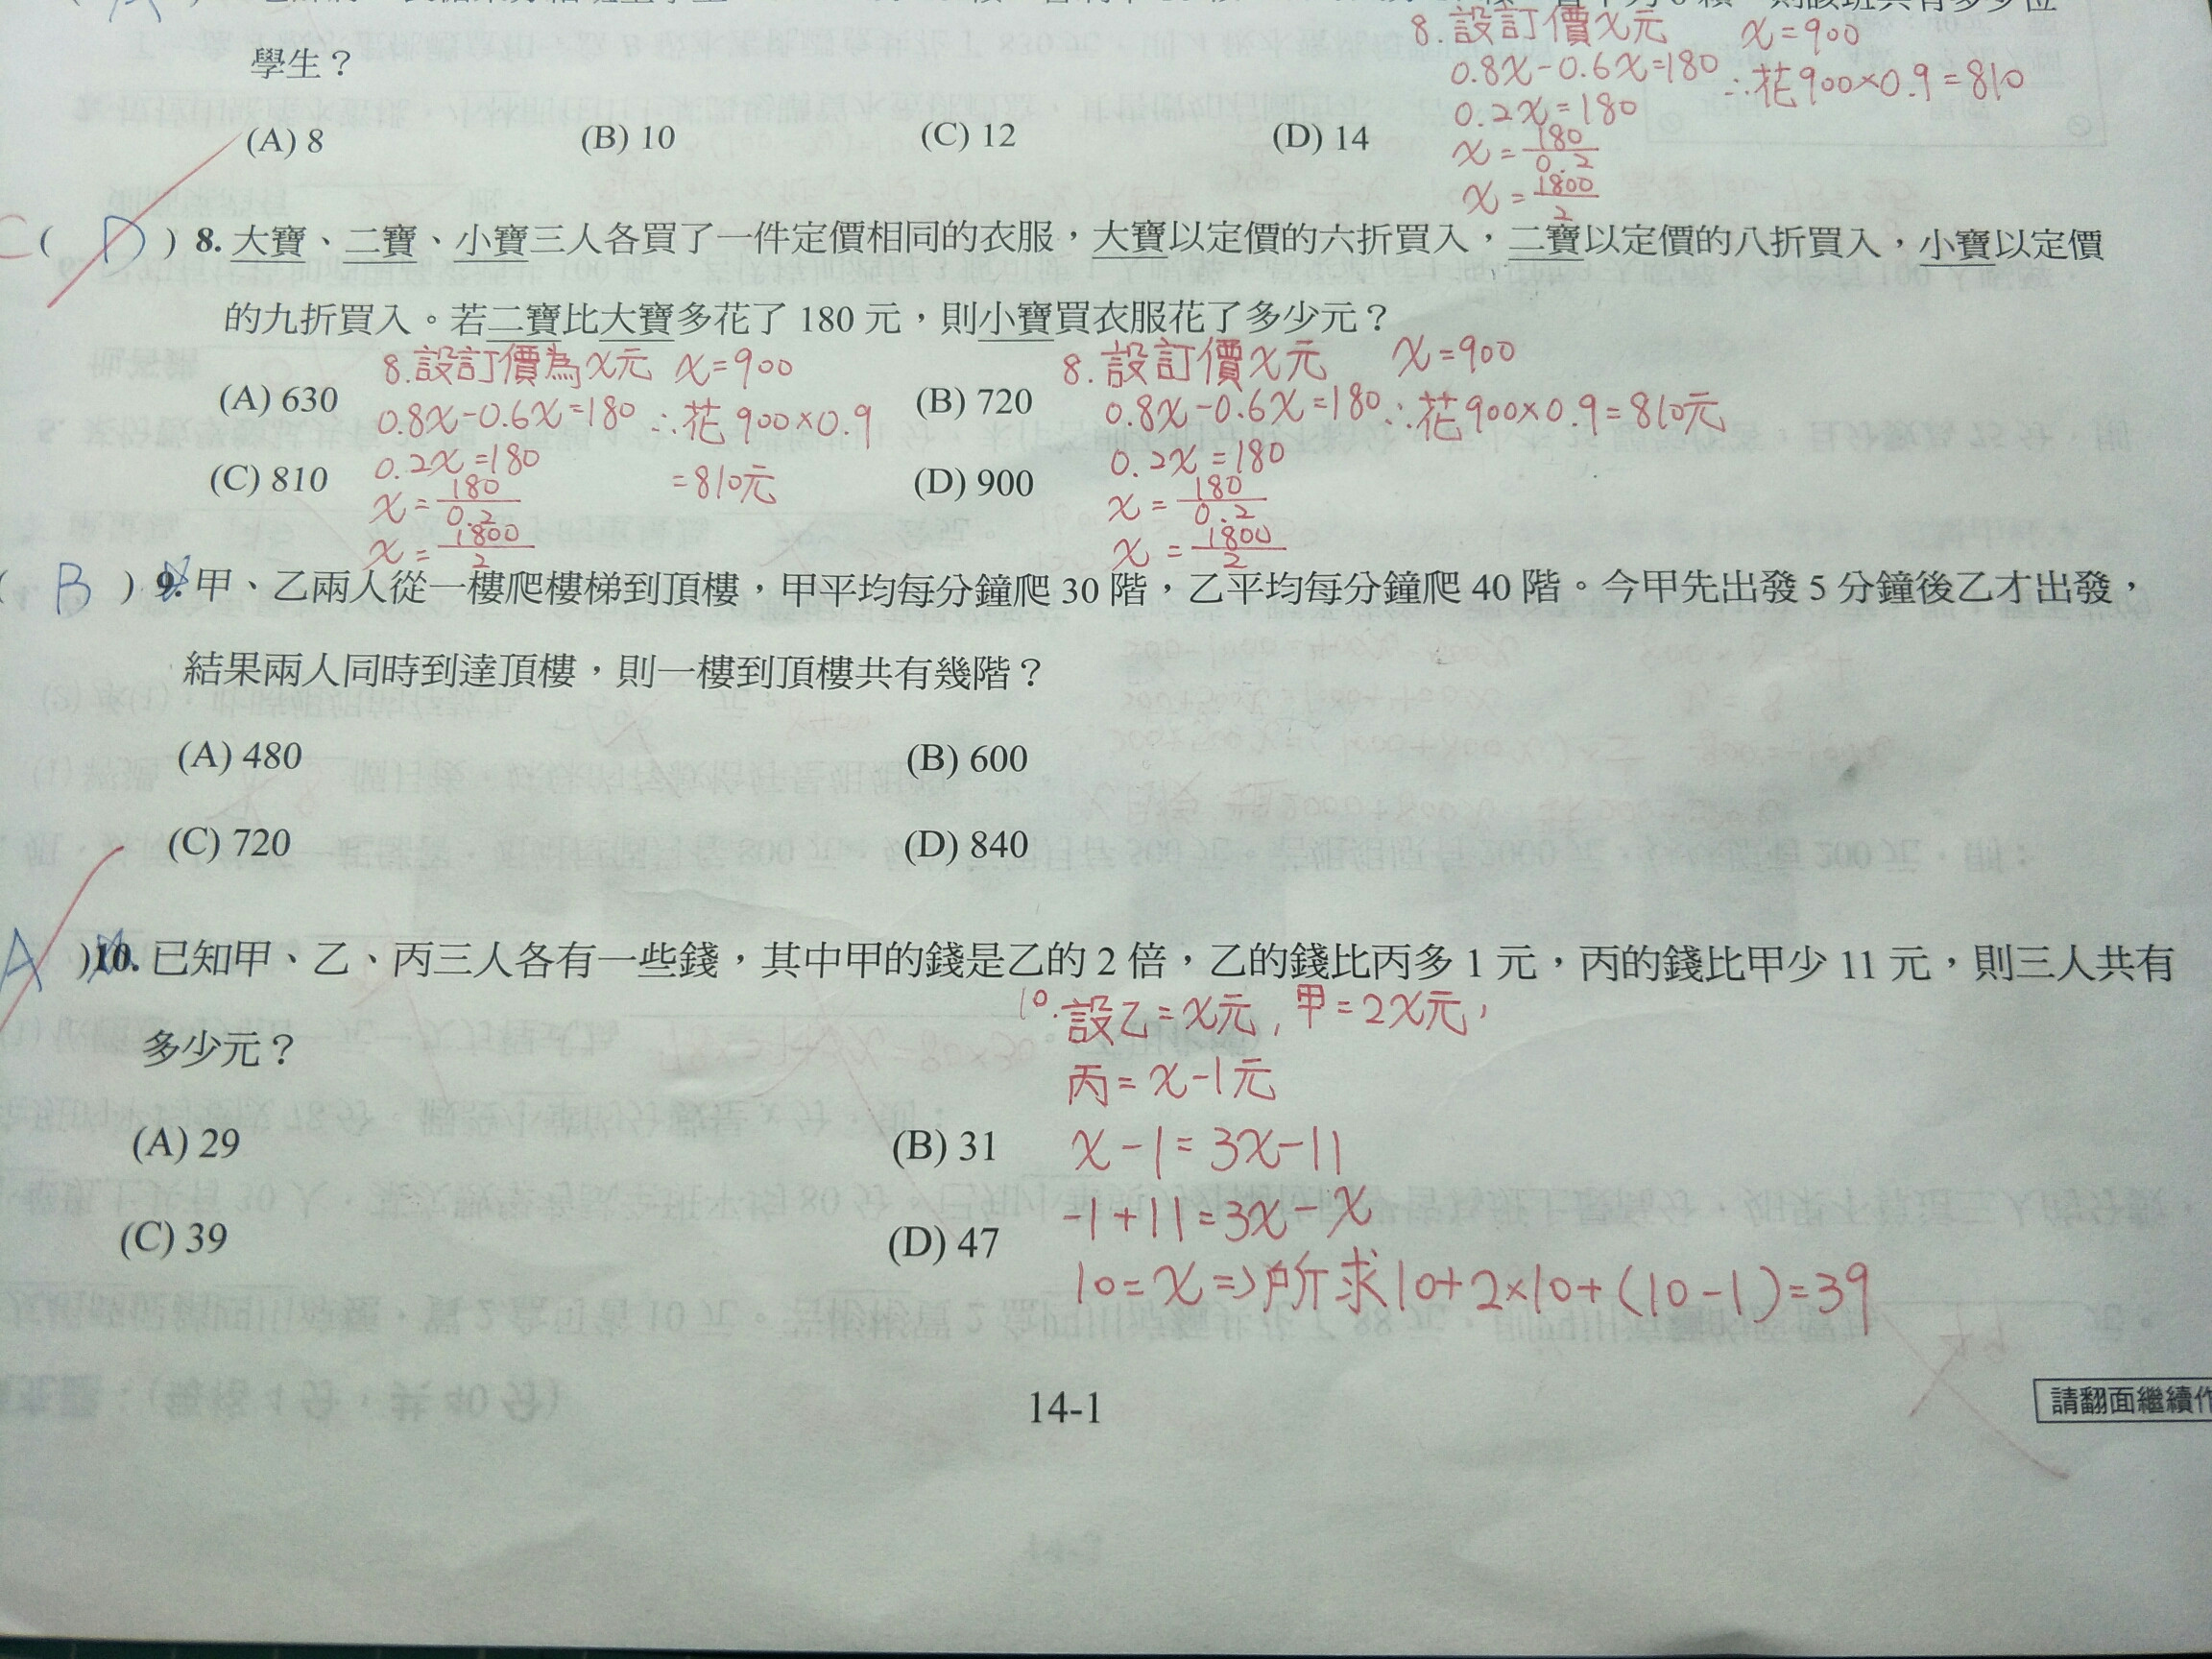 學生？
(A) 8 (B) 10 (C) 12 (D) 14
8.設訂價x元 x=900
0.8x-0.6x=180 ∴花900×0.9=810
0.2x=180
x=180/0.2
x=1800/2
C ( D ) 8. 大寶、二寶、小寶三人各買了一件定價相同的衣服，大寶以定價的六折買入，二寶以定價的八折買入，小寶以定價
的九折買入。若二寶比大寶多花了 180 元，則小寶買衣服花了多少元？
(A) 630 (B) 720
(C) 810 (D) 900
8.設訂價為x元 x=900
0.8x-0.6x=180 ∴花900×0.9
0.2x=180 =810元
x=180/0.2
x=1800/2
8.設訂價x元 x=900
0.8x-0.6x=180 ∴花900×0.9=810元
0.2x=180
x=180/0.2
x=1800/2
( B ) 9. 甲、乙兩人從一樓爬樓梯到頂樓，甲平均每分鐘爬 30 階，乙平均每分鐘爬 40 階。今甲先出發 5 分鐘後乙才出發，
結果兩人同時到達頂樓，則一樓到頂樓共有幾階？
(A) 480 (B) 600
(C) 720 (D) 840
A )10. 已知甲、乙、丙三人各有一些錢，其中甲的錢是乙的 2 倍，乙的錢比丙多 1 元，丙的錢比甲少 11 元，則三人共有
多少元？
(A) 29 (B) 31
(C) 39 (D) 47
10.設乙=x元,甲=2x元,
丙=x-1元
x-1=3x-11
-1+11=3x-x
10=x⇒所求10+2×10+(10-1)=39
14-1
請翻面繼續作